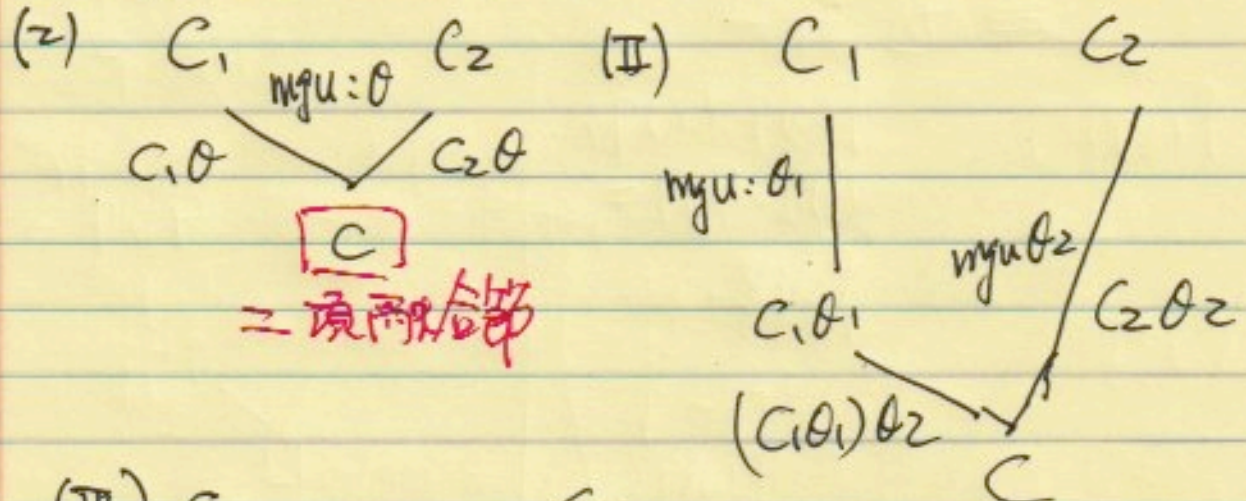 (z) C₁ C₂
mgu:θ
C₁θ C₂θ
C
二項融合節
(Ⅱ) C₁ C₂
mgu:θ₁
mgu θ₂
C₁θ₁ C₂θ₂
(C₁θ₁)θ₂
C